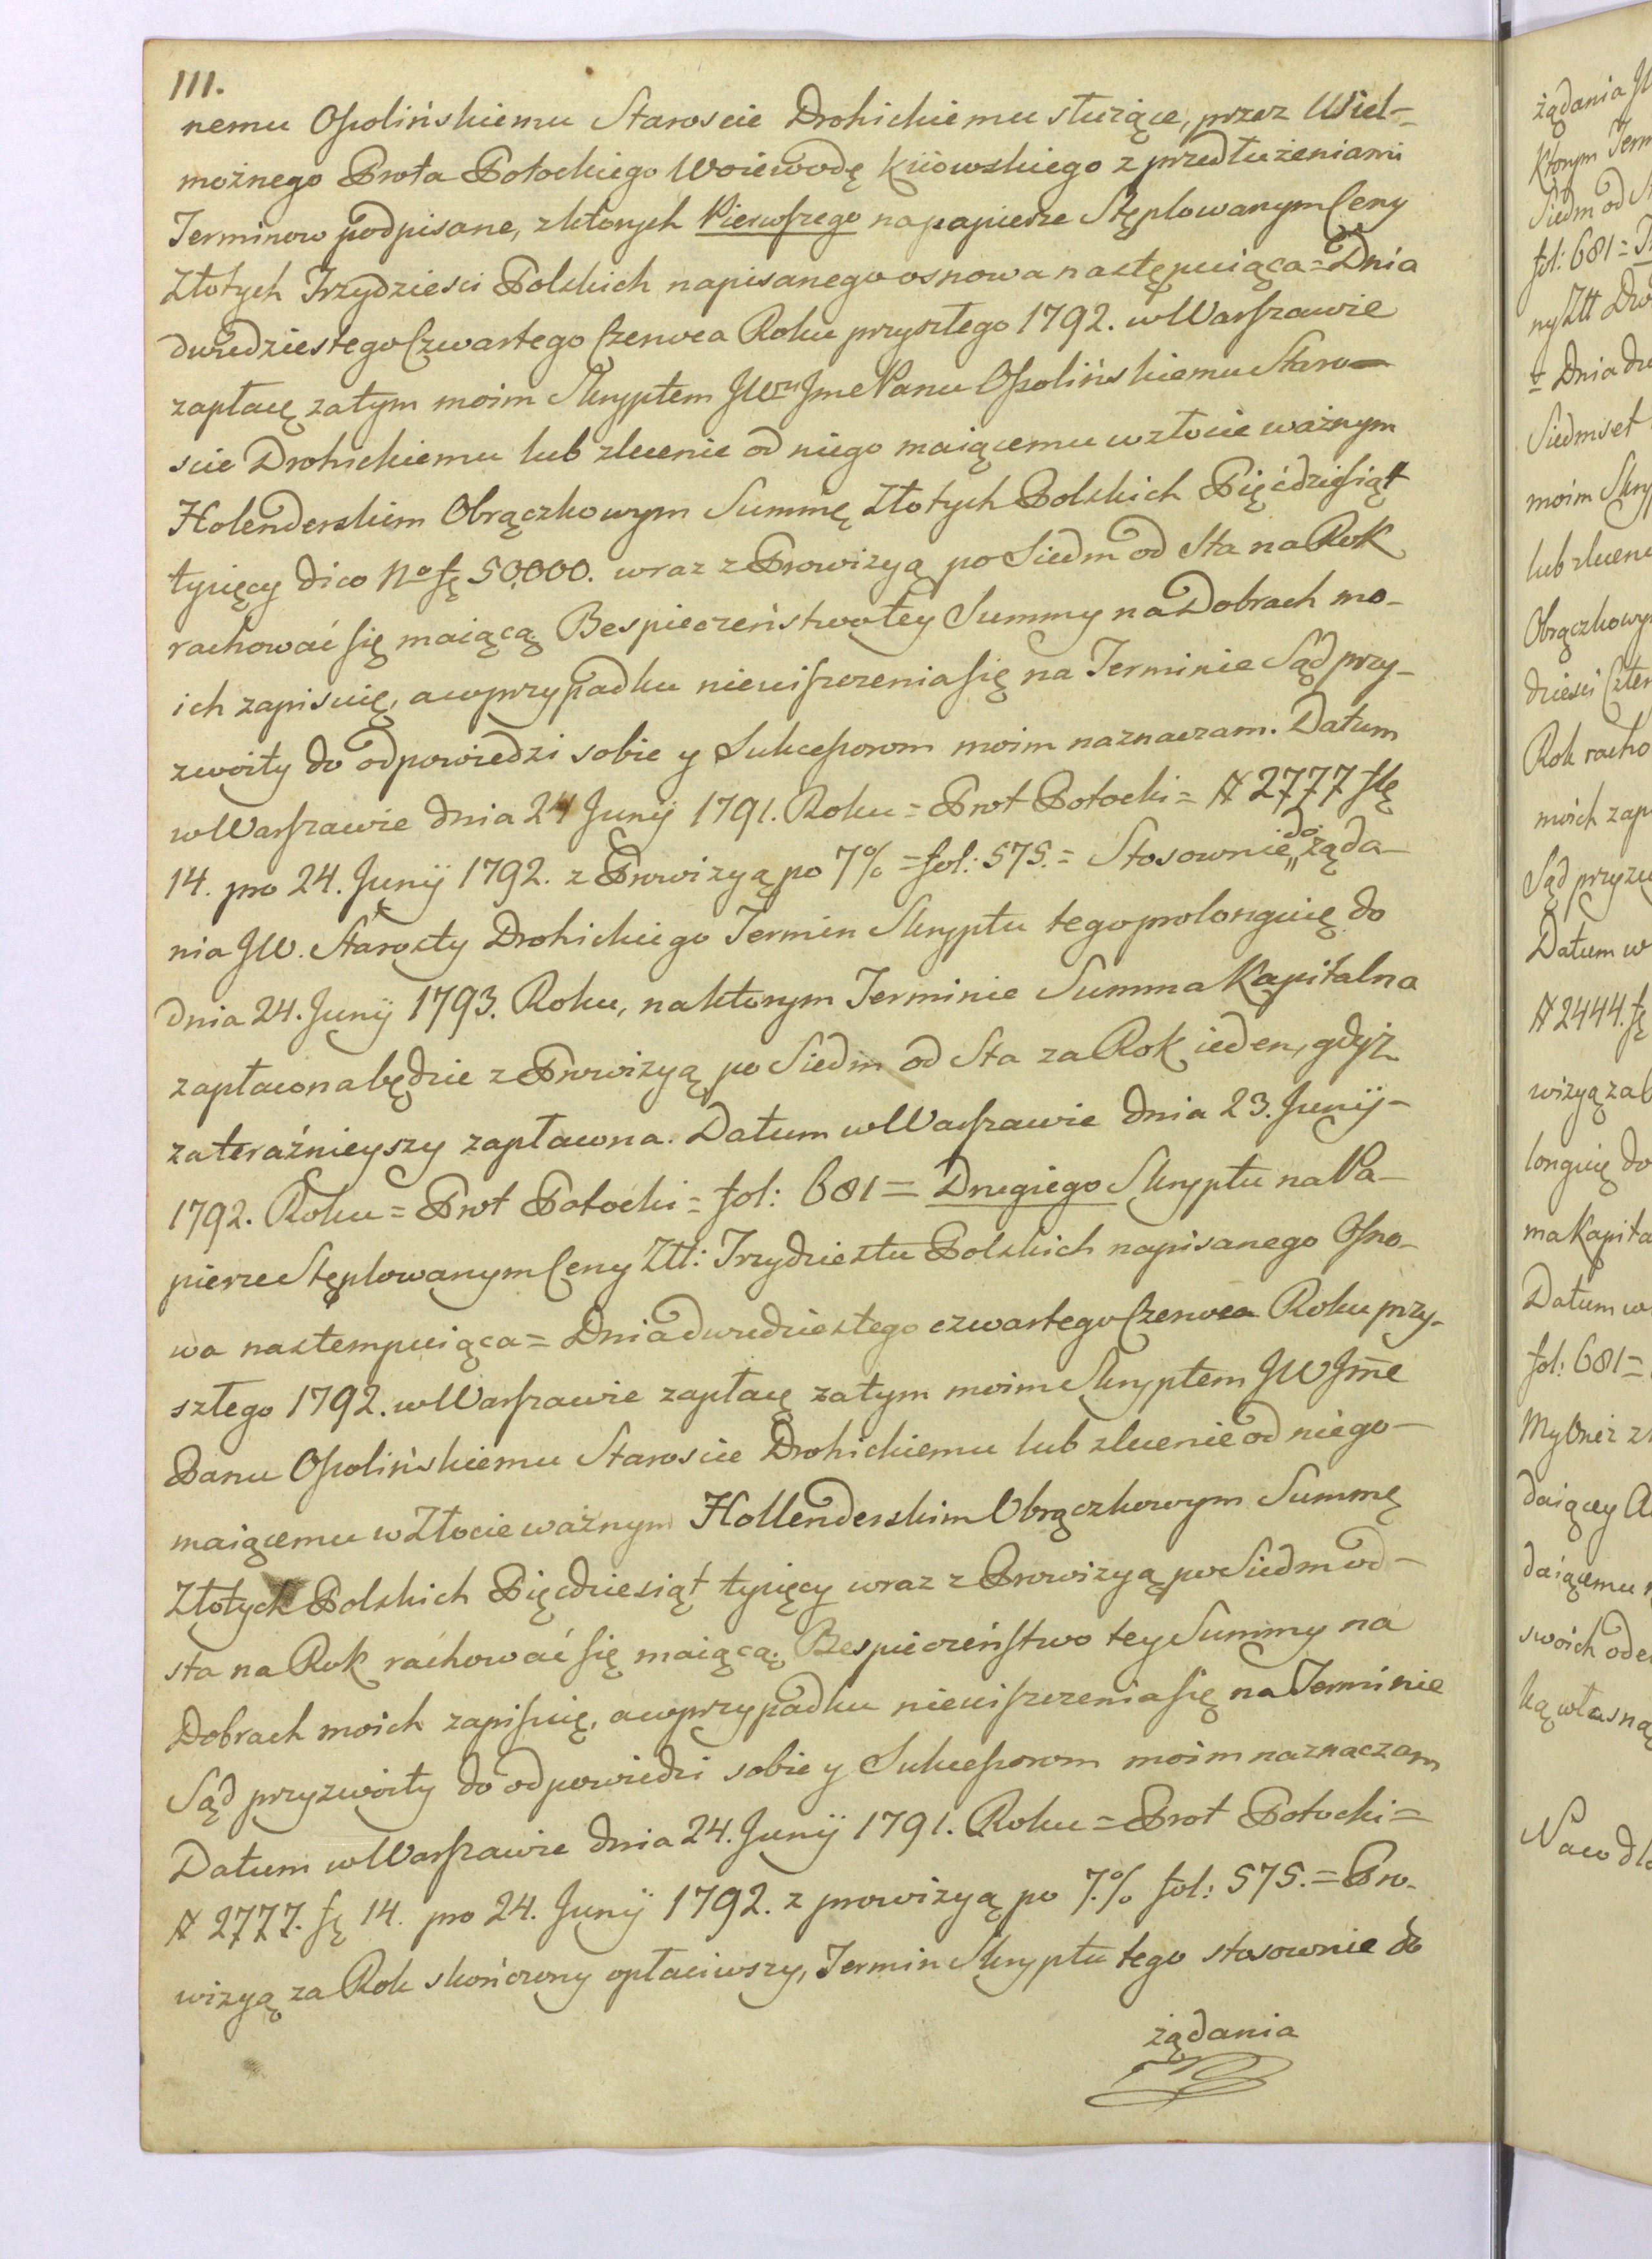 111.
nemu Ossolińskiemu Staroscie Drohickiemu służące, przez Wiel-
możnego Prota Potockiego Woiewodę Kiiowskiego z przedłużeniami
Terminow podpisane, z ktorych Pierwszego na papierze Stęplowanym Ceny
Złotych Trzydziesci Polskich napisanego osnowa następuiąca = Dnia
dwudziestego Czwartego Czerwca Roku przyszłego 1792. w Warszawie
zapłacę za tym moim Skryptem JWu Jme Panu Ossolińskiemu Staro-
scie Drohickiemu lub zlecenie od niego maiącemu w złocie ważnym
Holenderskim Obrączkowym Summę Złotych Polskich Pięćdziesiąt
tysięcy dico No fl 50,000. wraz z Prowizyą po Siedm od Sta na Rok
rachować się maiącą. Bespieczeństwo tey Summy na Dobrach mo-
ich zapisuię, a w przypadku nieuiszczenia się na Terminie Sąd przy-
zwoity do odpowiedzi sobie y Sukcessorom moim naznaczam. Datum
w Warszawie dnia 24 Junij 1791. Roku = Prot Potocki = # 2777 fl
14. pro 24. Junij 1792. z Prowizyą po 7% = fol: 575. = Stosownie do żąda-
nia JW. Starosty Drohickiego Termin Skryptu tego prolonguię do
dnia 24. Junij 1793. Roku, na ktorym Terminie Summa Kapitalna
zapłacona będzie z Prowizyą po Siedm od Sta za Rok ieden, gdyż
za teraźnieyszy zapłacona. Datum w Warszawie dnia 23. Junij-
1792. Roku = Prot Potocki = fol: 681 = Drugiego Skryptu na Pa-
pierze Stęplowanym Ceny Ztt: Trzydziestu Polskich napisanego Osno-
wa nastempuiąca = Dnia dwudziestego czwartego Czerwca Roku przy-
szłego 1792. w Warszawie zapłacę za tym moim Skryptem JW Jme
Panu Ossolińskiemu Staroscie Drohickiemu lub zlecenie od niego-
maiącemu w Złocie ważnym Hollenderskim Obrączkowym Summę
Złotych Polskich Pięcdziesiąt tysięcy wraz z Prowizyą po Siedm od-
sta na Rok rachować się maiącą. Bespieczeństwo tey Summy na
Dobrach moich zapisuię, a w przypadku nieuiszczenia się na Terminie
Sąd przyzwoity do odpowiedzi sobie y Sukcessorom moim naznaczam
Datum w Warszawie dnia 24. Junij 1791. Roku = Prot Potocki =
# 2777. fl 14. pro 24. Junij 1792. z prowizyą po 7.% fol: 575. = Pro-
wizyą za Rok skończony opłaciwszy, Termin Skryptu tego stosownie do
żądania
żądania
ktorym Term
Siedm od
fol: 681 =
ny Ztt
= Dnia
Siedmset
moim Skry
lub zlecen
Obrączkowy
dziesci Czter
Rok racho
moich zap
Sąd przyzw
Datum w
# 2444. fl
wizyą za
longuię do
ma Kapita
Datum w
fol: 681 =
daiącey
daiącemu
swoich
ką własną